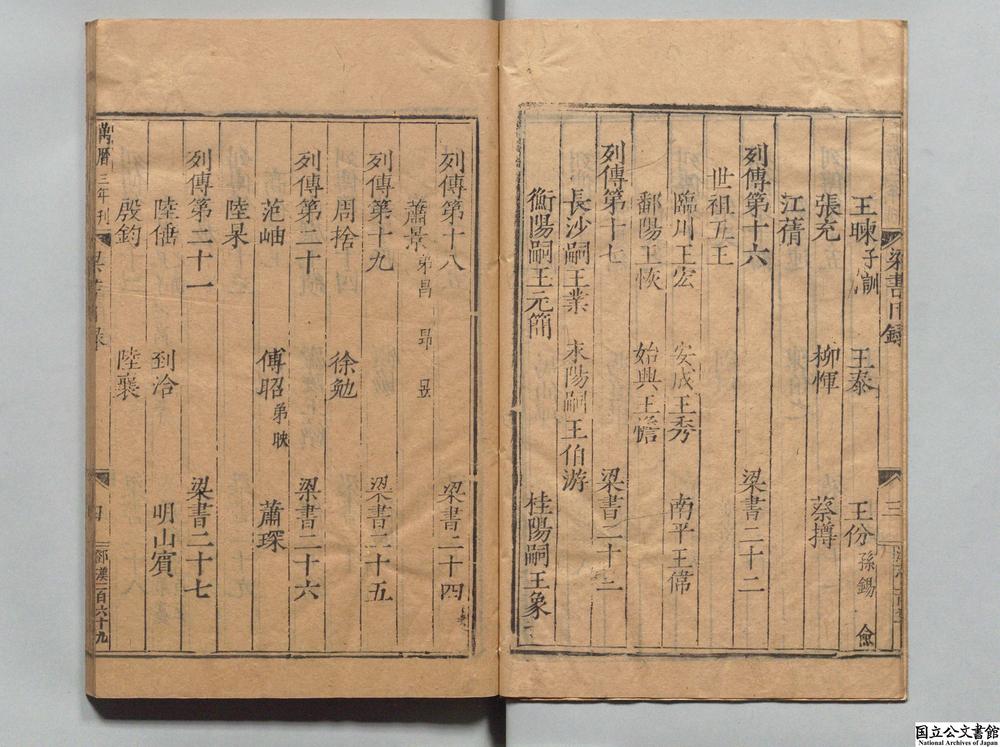 梁書目錄
三
王暕 子訓 王泰 王份 孫錫 僉
張充 柳惲 蔡撙
江蒨
列傳第十六 梁書二十二
世祖五王
臨川王宏 安成王秀 南平王偉
鄱陽王恢 始興王憺
列傳第十七 梁書二十三
長沙嗣王業 永陽嗣王伯游
衡陽嗣王元簡 桂陽嗣王象
列傳第十八 梁書二十四
蕭景 弟昌 昂 昱
列傳第十九 梁書二十五
周捨 徐勉
列傳第二十 梁書二十六
范岫 傅昭 弟映 蕭琛
陸杲
列傳第二十一 梁書二十七
陸倕 到洽 明山賓
殷鈞 陸襄
萬曆三年刊
四
鄒漢一百六十九
国立公文書館
National Archives of Japan